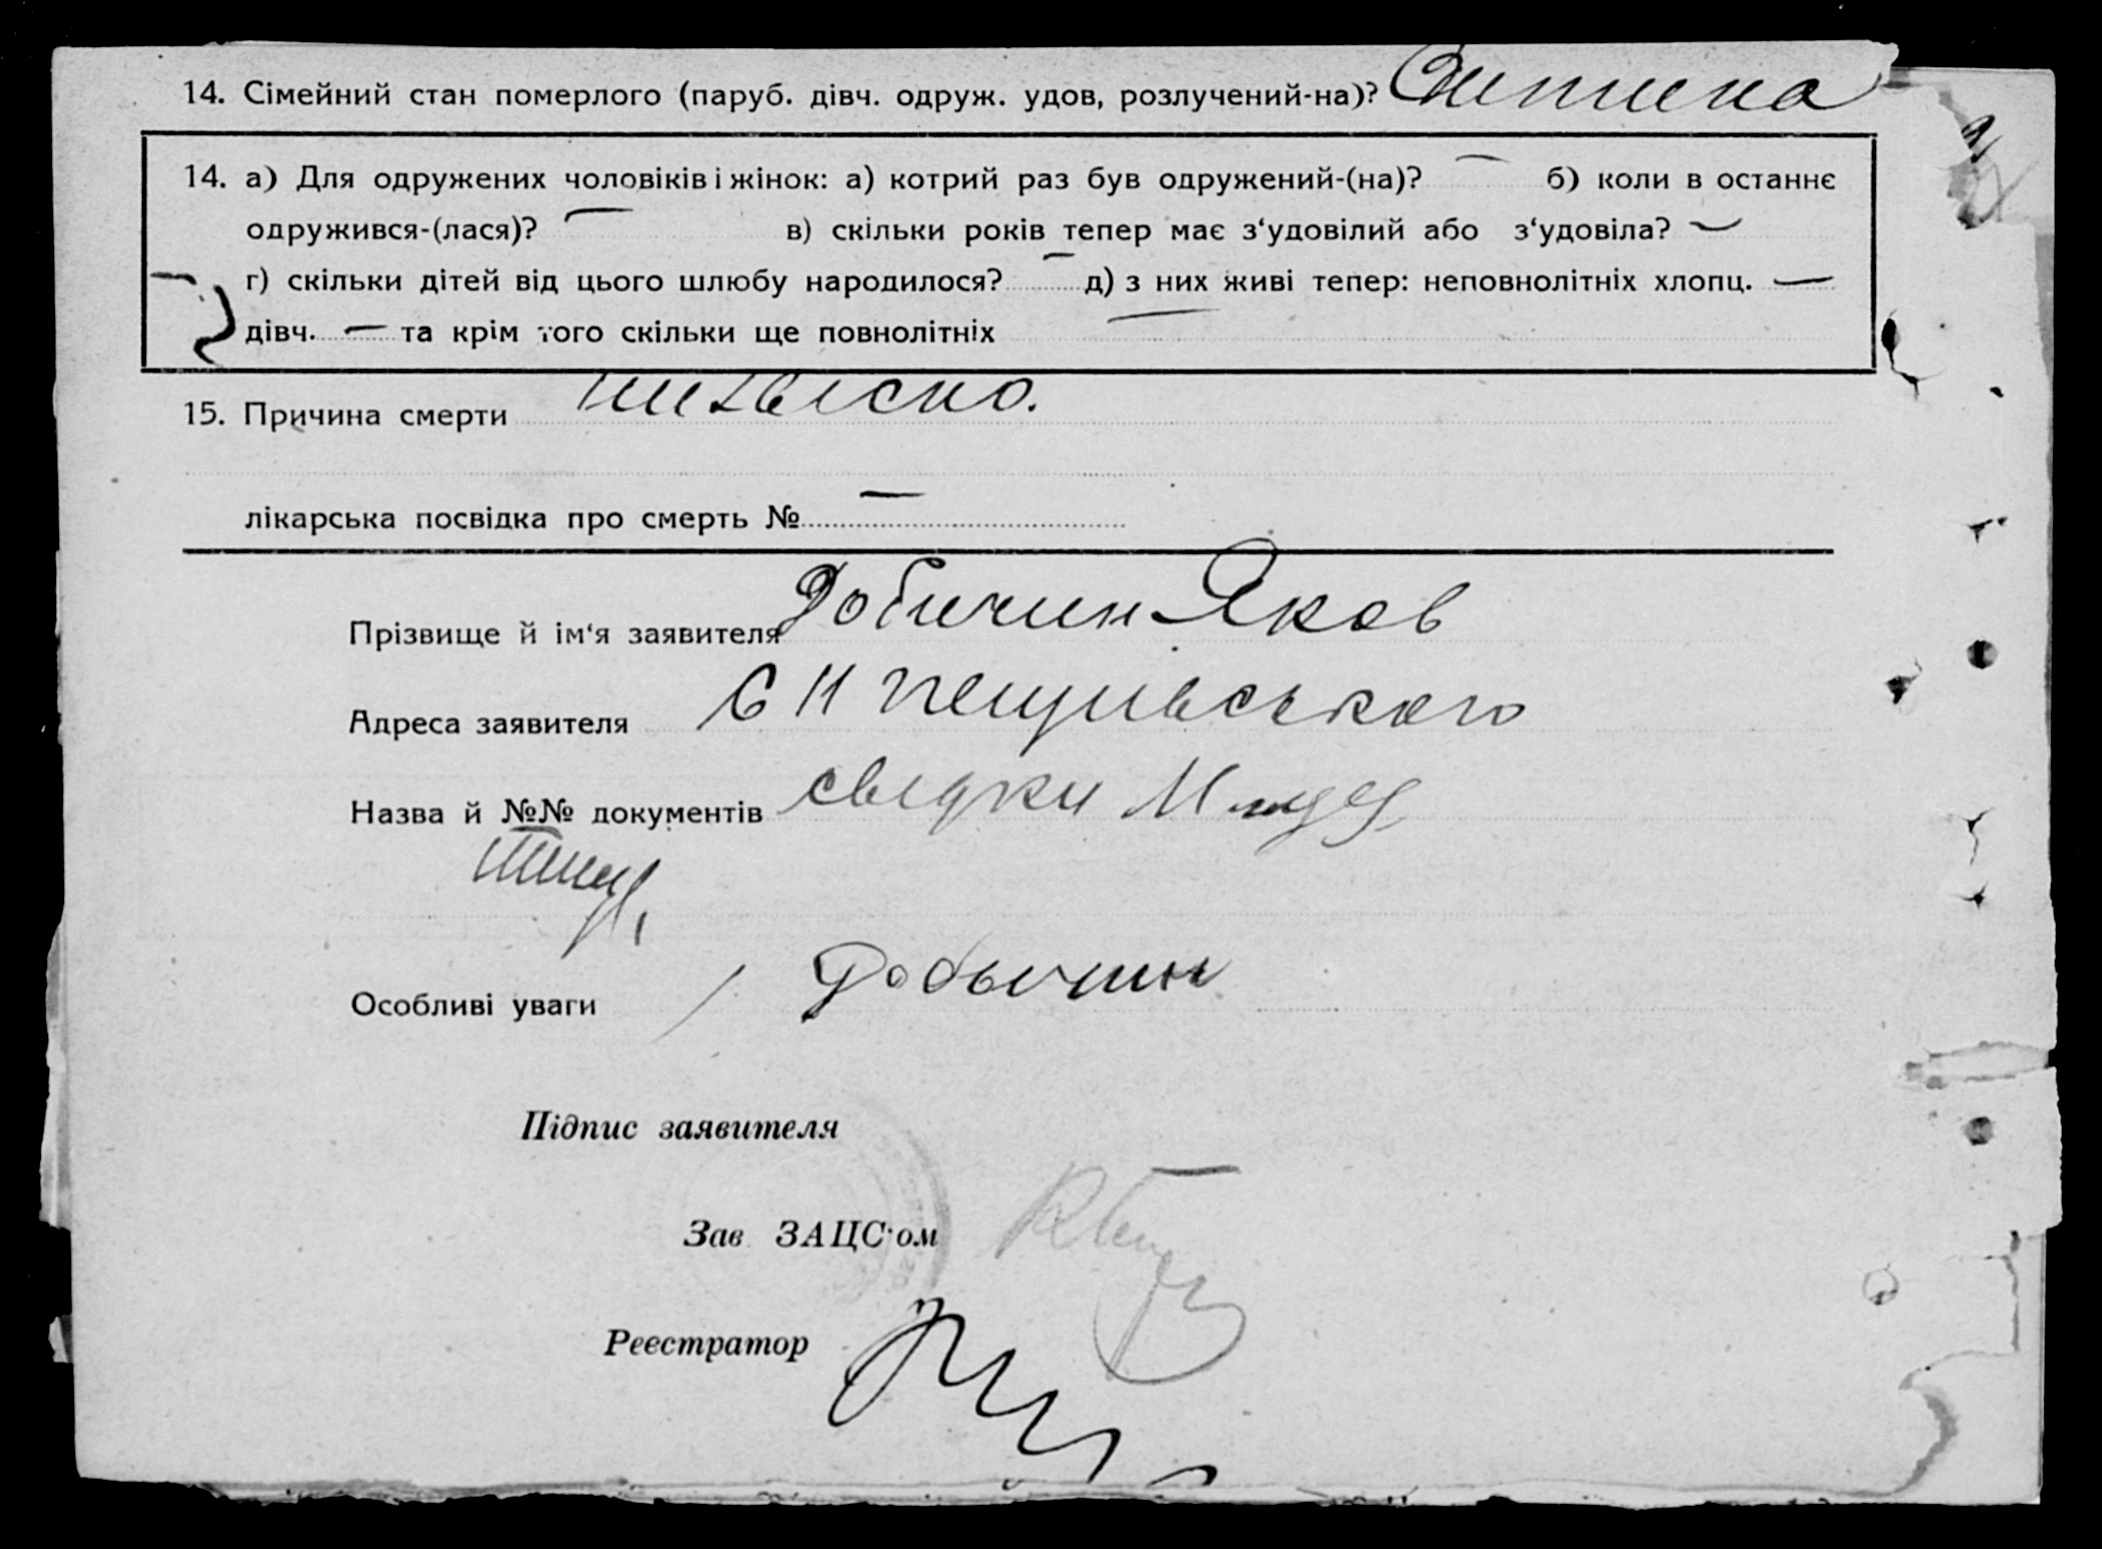 14. Сімейний стан померлого (паруб. дівч. одруж. удов, розлучений-на)? Дитина
14. а) Для одружених чоловіків і жінок: а) котрий раз був одружений-(на)? — б) коли в останнє
одружився-(лася)? — в) скільки років тепер має з‘удовілий або з‘удовіла? —
г) скільки дітей від цього шлюбу народилося? — д) з них живі тепер: неповнолітніх хлопц. —
дівч. — та крім того скільки ще повнолітніх —
15. Причина смерти невідено.
лікарська посвідка про смерть № —
Прізвище й ім‘я заявителя Добичин Яков
Адреса заявителя
Назва й №№ документів свідки
Особливі уваги Добычин
Підпис заявителя
Зав ЗАЦС‘ом
Реєстратор